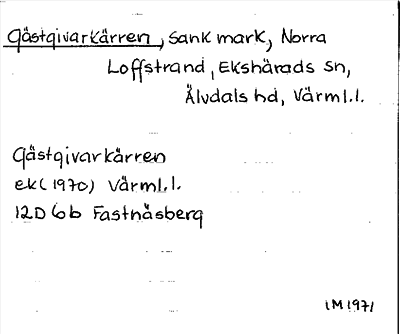 Gästgivarkärren, sank mark, Norra
Loffstrand, Ekshärads sn,
Älvdals hd, Värml.l.
Gästgivarkärren
ek (1970) Värml.l.
12D 6b Fastnäsberg
IM1971